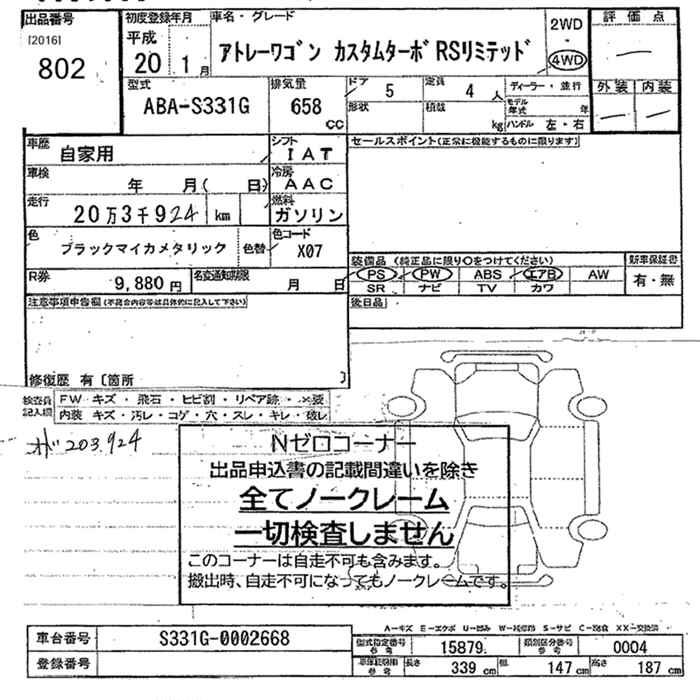 出品番号
[2016]
802
初度登録年月
平成
20 1月
車名・グレード
アトレーワゴン カスタムターボRSリミテッド
2WD
・
4WD
評価点
外装 内装
型式
ABA-S331G
排気量
658
CC
ドア 5
定員 4人
形状
積載 kg
ディーラー・並行
モデル年式 年
ハンドル 左・右
車歴 自家用
シフト IAT
車検 年 月( 日)
冷房 AAC
走行 20万3千924 km
燃料 ガソリン
色 ブラックマイカメタリック 色替
色コード X07
R券 9,880円
名変通知期限 月 日
セールスポイント(正常に機能するものに限ります)
装備品(純正品に限り○をつけてください)
PS PW ABS エアB AW
SR ナビ TV カワ
新車保証書
有・無
後日品
注意事項申告欄(不具合内容等は具体的に記入して下さい)
修復歴 有〔箇所 〕
検査員記入欄
FW キズ・飛石・ヒビ割・リペア跡・×要
内装 キズ・汚レ・コゲ・穴・スレ・キレ・破レ
203.924
Nゼロコーナー
出品申込書の記載間違いを除き
全てノークレーム
一切検査しません
このコーナーは自走不可も含みます。
搬出時、自走不可になってもノークレームです。
車台番号 S331G-0002668
登録番号
A-キズ E-エクボ U-凹み W-補修跡 S-サビ C-腐食 XX-交換済
型式指定番号 参考 15879
類別区分番号 参考 0004
長さ 339cm 幅 147cm 高さ 187cm